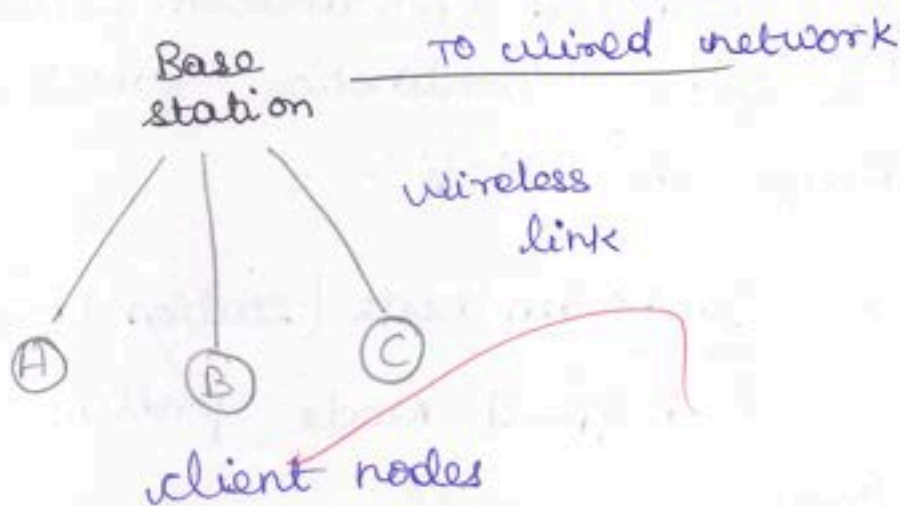 Base
station
To wired network
wireless
link
A
B
C
client nodes